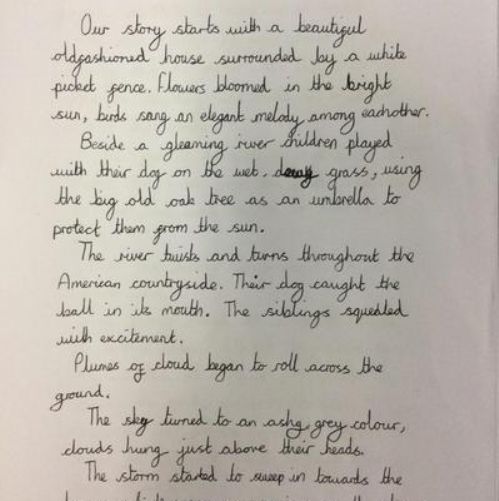 Our story starts with a beautiful
oldfashioned house surrounded by a white
picket fence. Flowers bloomed in the bright
sun, birds sang an elegant melody among eachother.
Beside a gleaming river children played
with their dog on the wet, grass, using
the big old oak tree as an umbrella to
protect them from the sun.
The river twists and turns throughout the
American countryside. Their dog caught the
ball in its mouth. The siblings squealed
with excitement.
Plumes of cloud began to roll across the
ground.
The sky turned to an ashy grey colour,
clouds hung just above their heads.
The storm started to sweep in towards the